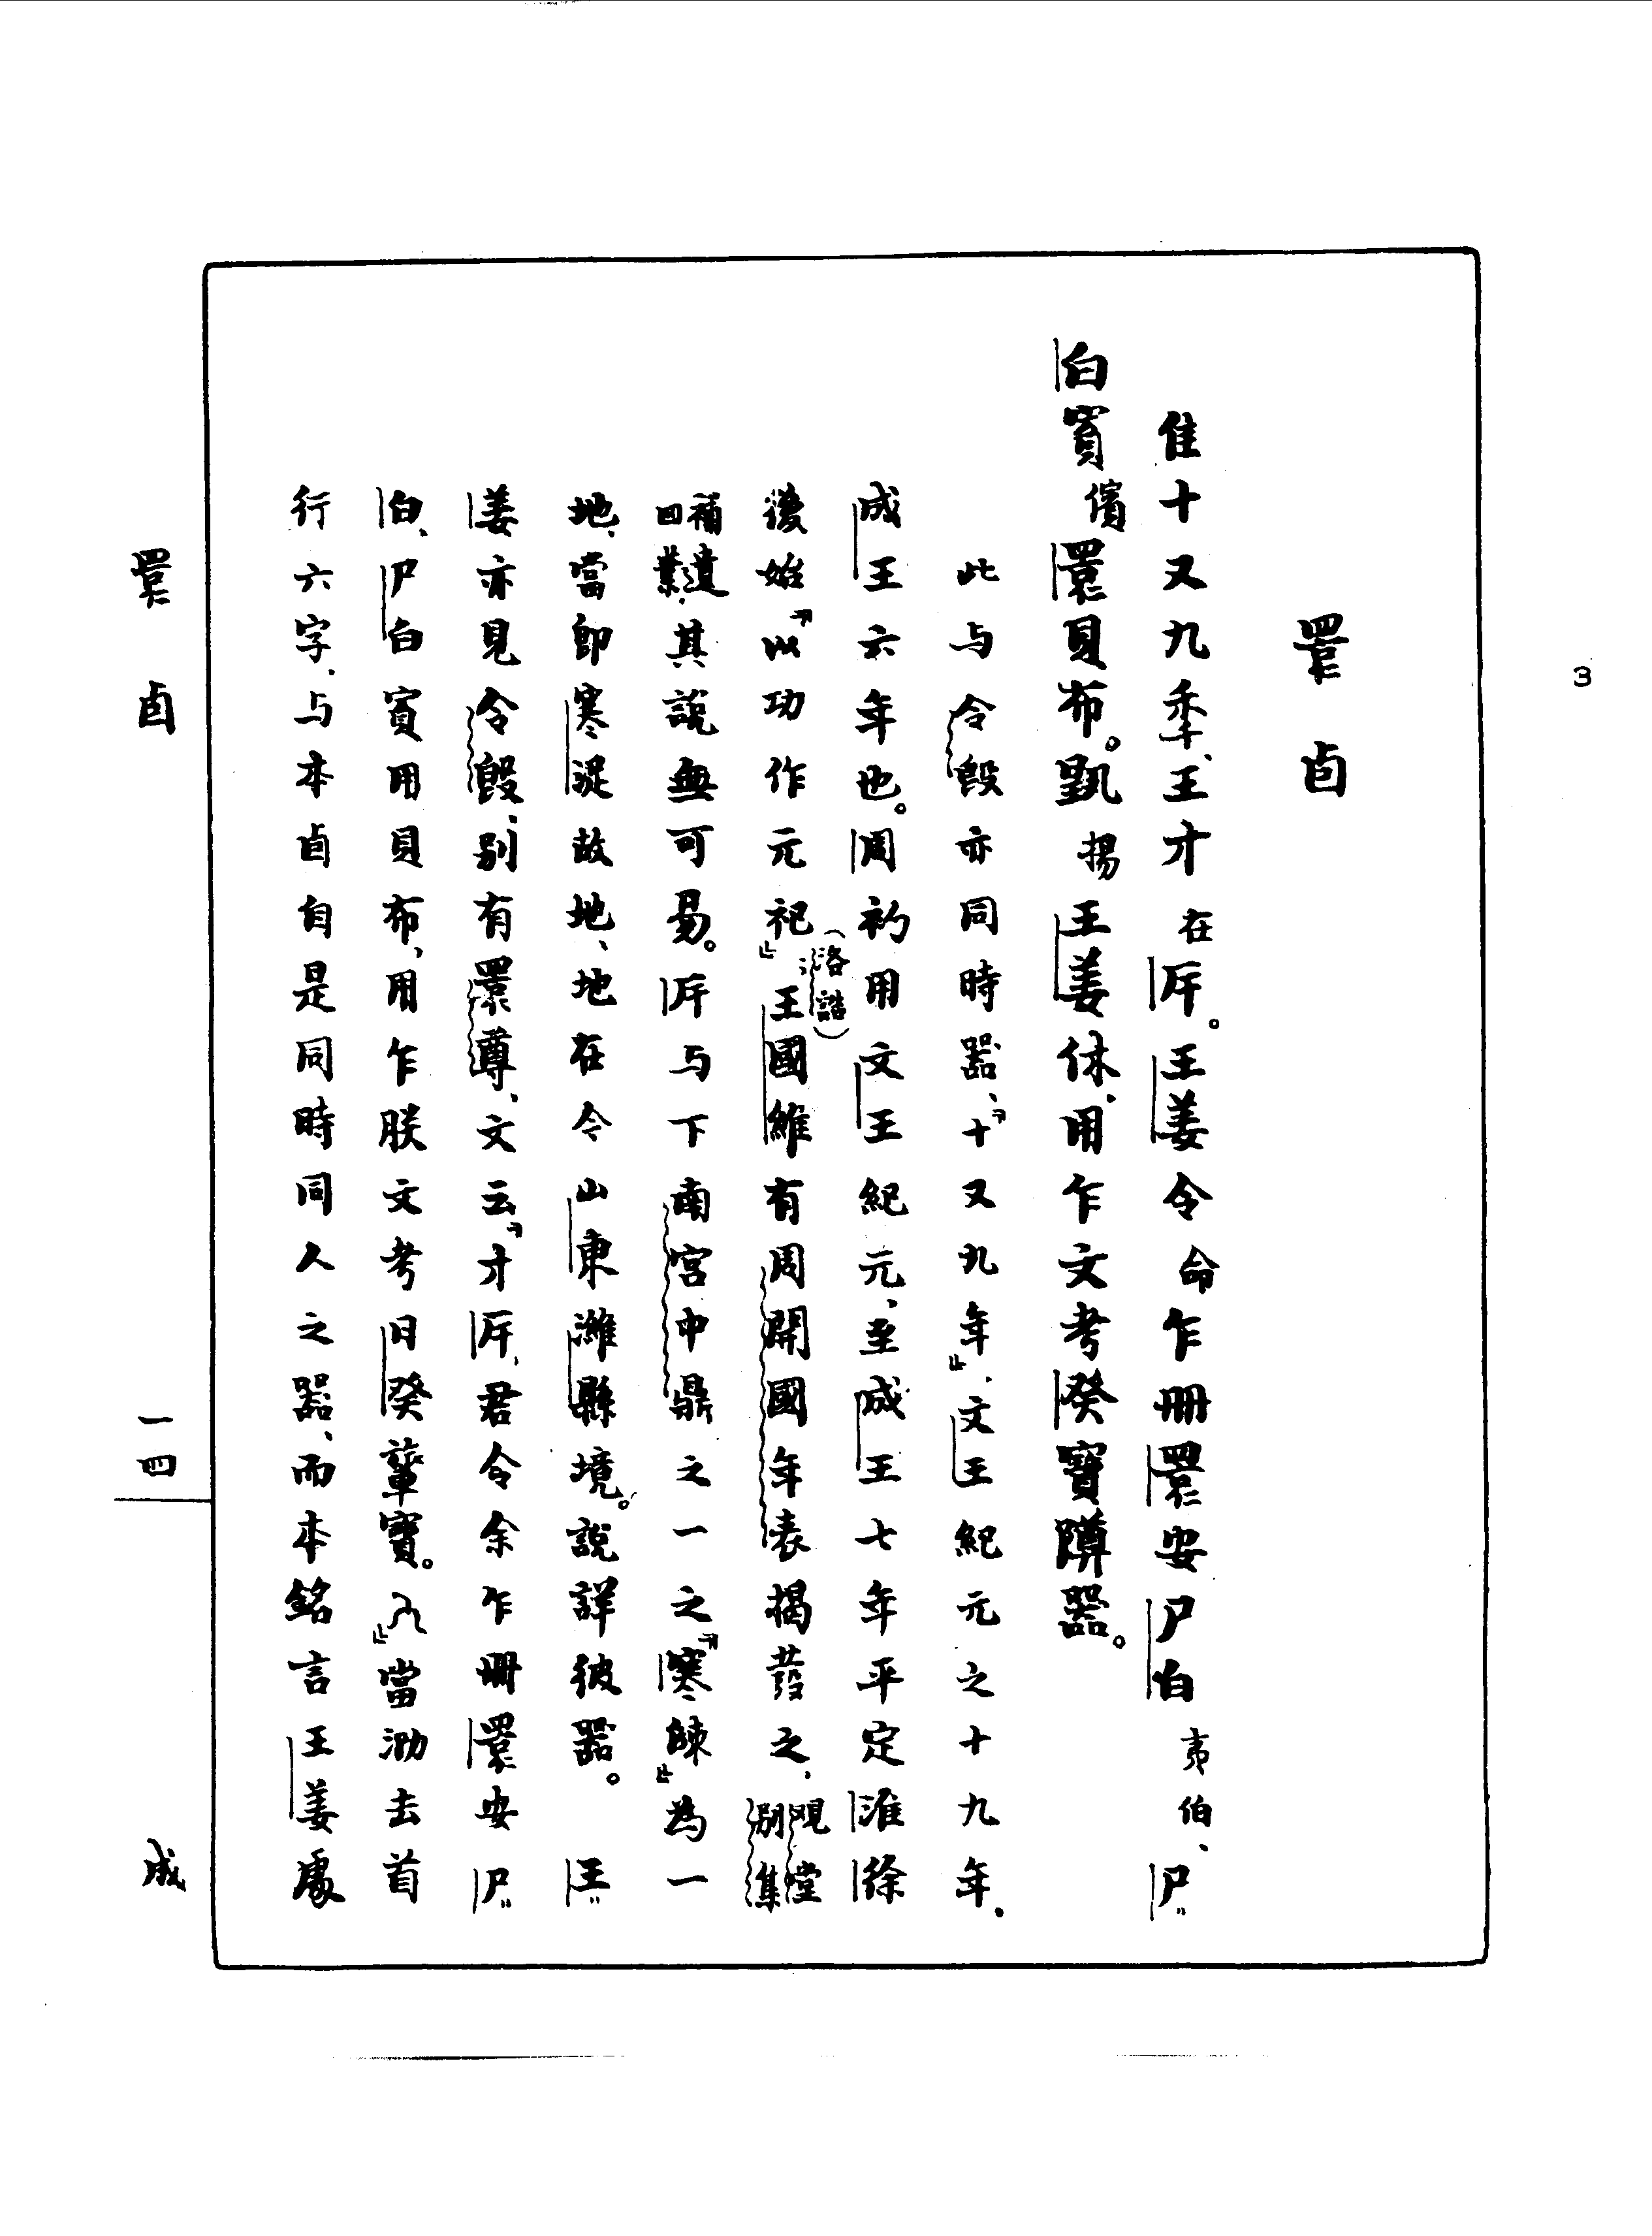 3
睘卣
隹十又九年、王才在𢇛。王姜令命乍冊睘安尸白夷伯、尸〻
白賓儐睘貝布。𩁹揚王姜休、用乍文考癸寶𨺅器。
此与令𣪘亦同時器、『十又九年』、文王紀元之十九年、
成王六年也。周初用文王紀元、至成王七年平定淮徐
後始『以功作元祀』（洛誥）；王國維有周開國年表揭發之、觀堂別集
補遺四葉、其說無可易。厈与下南宮中鼎之一之『寒𠂤』為一
地、當即寒浞故地、地在今山東濰縣境。說詳彼器。王〻
姜亦見令𣪘、別有睘尊、文云『才厈、君令余乍冊睘安尸〻
白、尸白賓用貝布、用乍朕文考日癸肇寶。』當泐去首
行六字、与本卣自是同時同人之器、而本銘言王姜處
睘卣
一四
成